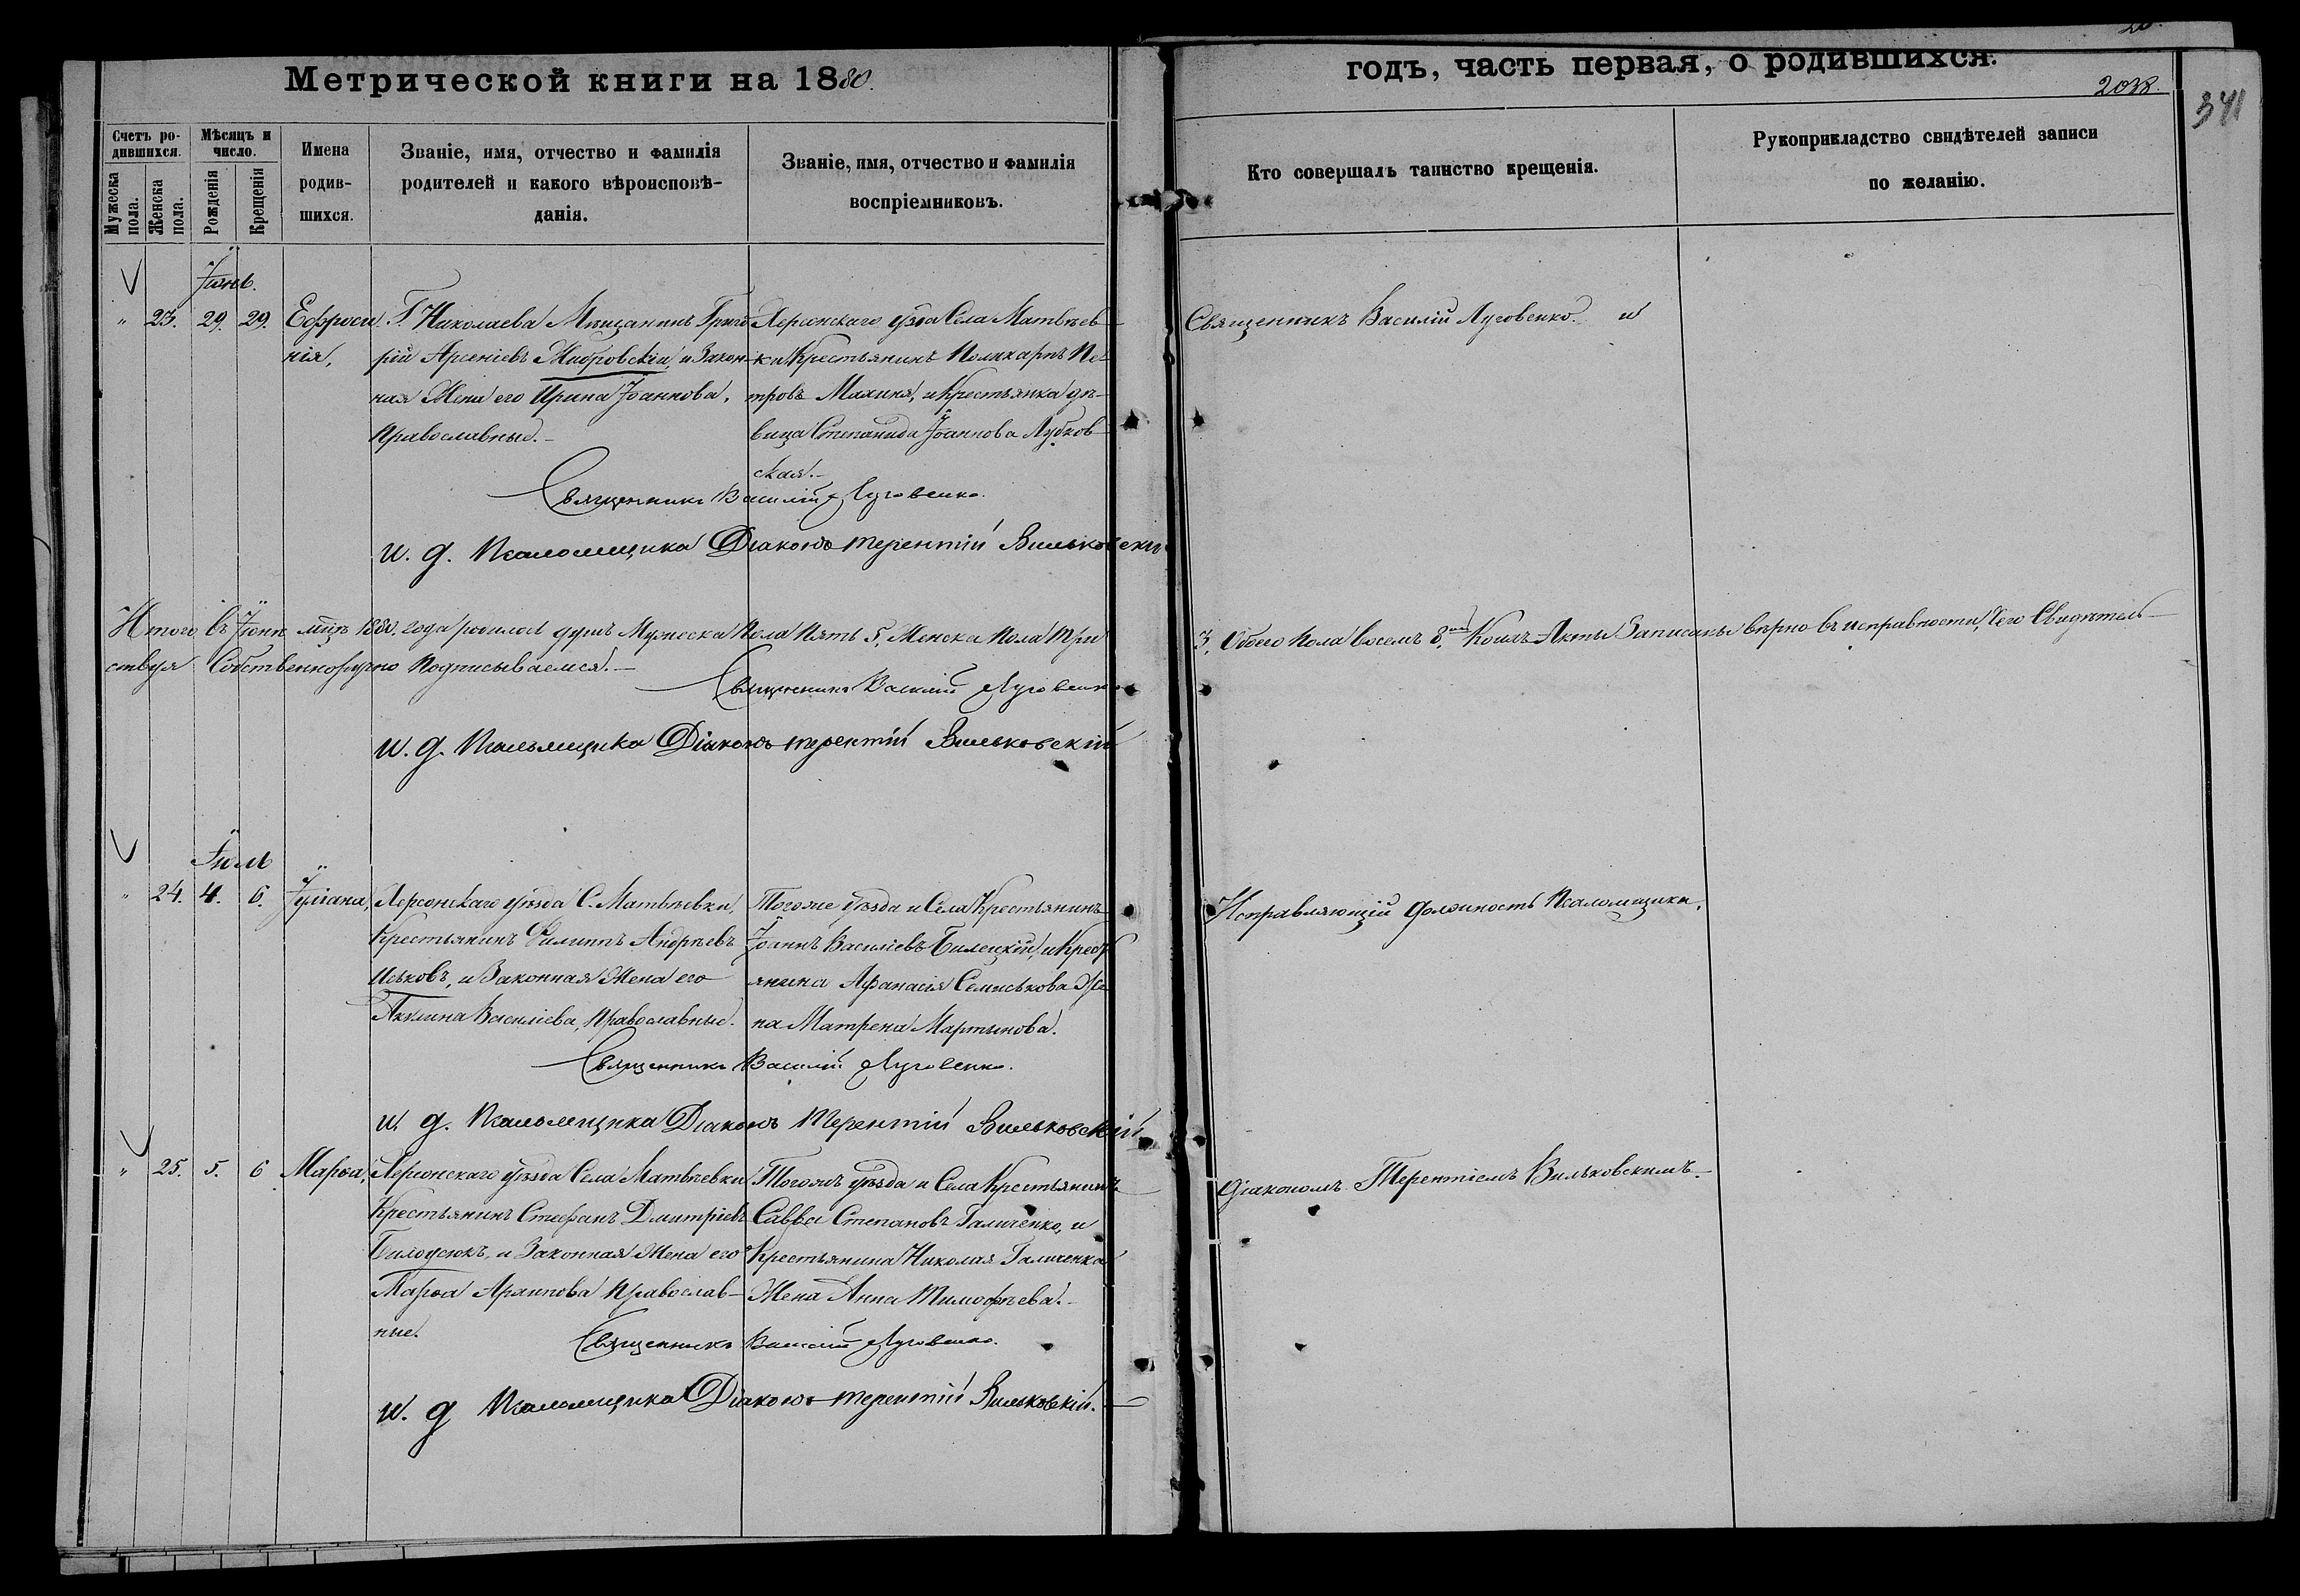 Метрической книги на 1880.
годъ, часть первая, о родившихся.
2038.
341
Счетъ ро-
дившихся.
Мужеска
пола.
Женска
пола.
Мѣсяцъ и
число.
Рожденія
Крещенія
Имена
родив-
шихся.
Званіе, имя, отчество и фамилія
родителей и какого вѣроисповѣ-
данія.
Званіе, имя, отчество и фамилія
воспріемниковъ.
Кто совершалъ таинство крещенія.
Рукоприкладство свидѣтелей записи
по желанію.
Іюнь.
" 23. 29. 29.
Ефроси
нія,
Г. Николаева Мѣщанинъ Григо
рій Арсеніевъ и Закон-
ная Жена его Ирина Іоаннова,
Православные.-
Херсонскаго уѣзда Села Матвѣев-
ки Крестьянинъ Поликарпъ Пе-
тровъ Махиня, и Крестьянка дѣ-
вица Степанида Іоаннова Лубков-
ская.-
Священникъ Василій Луговенко. и
Священникъ Василій Луговенко.
и. д. Псаломщика Діаконъ Терентій Вильковскій
Итого въ Іюнѣ мцѣ 1880. года родилось душъ Мужеска Пола Пять 5, Женска Пола Три
3. Обоего Пола восемь 8. Коихъ Акты Записаны вѣрно въ исправности, Чего Свидѣтель-
ствуя Собственноручно Подписываемся.-
Священникъ Василій Луговенко
и. д. Псаломщика Діаконъ Терентій Вильковскій
Іюль
" 24. 4. 6.
Іуліана,
Херсонскаго уѣзда С. Матвѣевки,
Крестьянинъ Филиппъ Андреевъ
Иськовъ, и Законная Жена его
Акилина Василіева, Православные.
Тогоже уѣзда и Села Крестьянинъ
Іоаннъ Василіевъ Билецкій, и Крест
янина Афанасія Семиськова Же
на Матрена Мартынова.
Исправляющій должность Псаломщика,
Священникъ Василій Луговенко.
и. д. Псаломщика Діаконъ Терентій Вильковскій
" 25. 5. 6
Марѳа,
Херсонскаго уѣзда Села Матвѣевки
Крестьянинъ Стефанъ Дмитріевъ
Билоусюкъ, и Законная Жена его
Марѳа Архипова Православ-
ные.
Тогожъ уѣзда и Села Крестьянинъ
Савва Степановъ Галиченко, и
Крестьянина Николая Галиченка
Жена Анна Тимофѣева.-
діакономъ Терентіемъ Вильковскимъ.-
Священникъ Василій Луговенко.
и. д Псаломщика Діаконъ Терентій Вильковскій.-